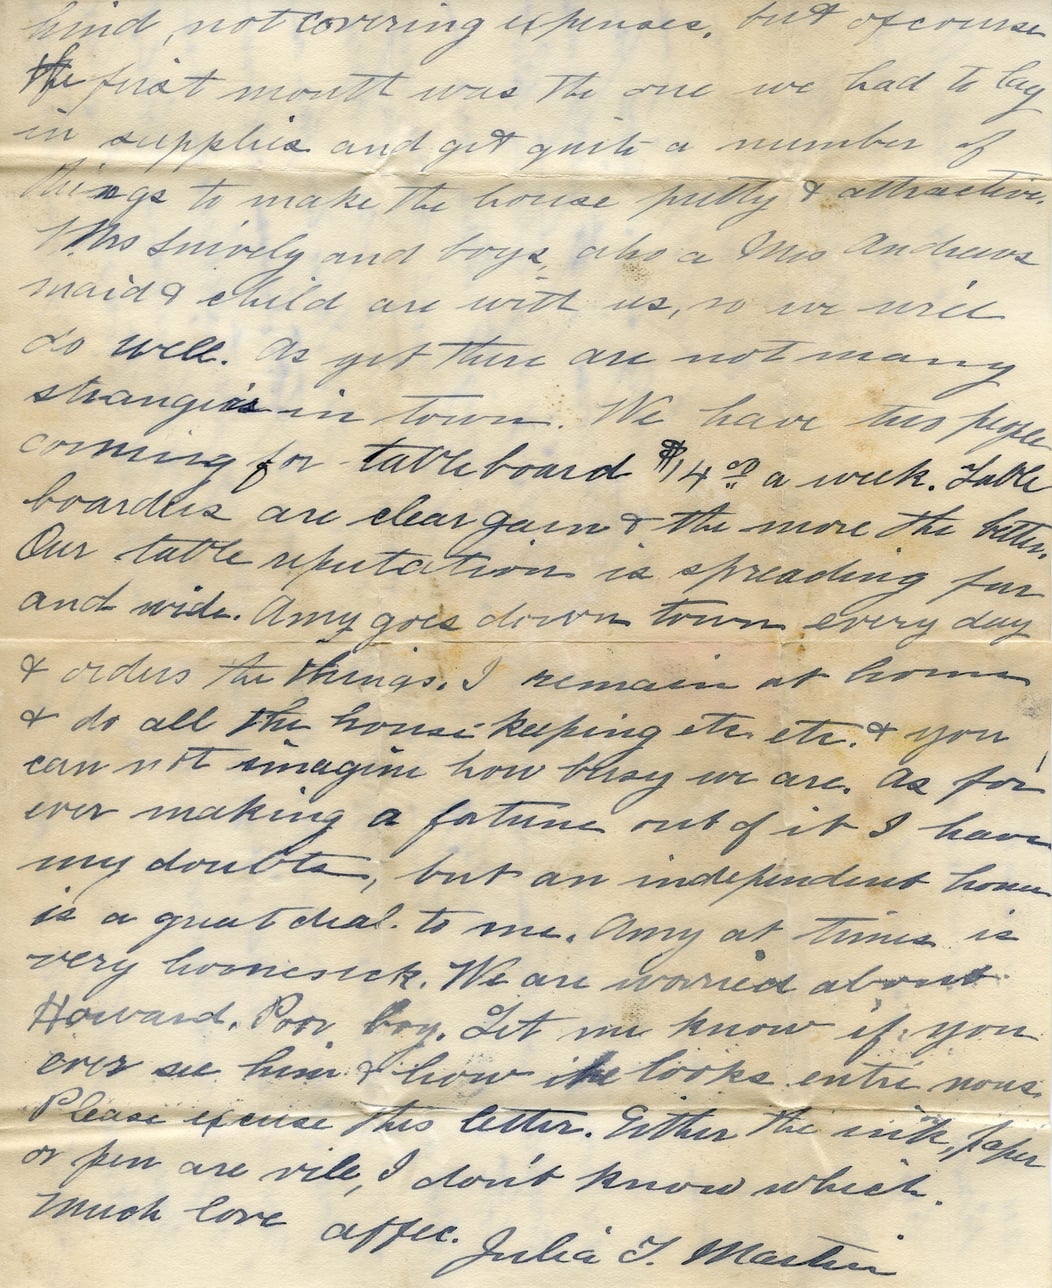 hind, not covering expenses. but of course
the first month was the one we had to lay
in supplies and get quite a number of
things to make the house pretty & attractive.
Mrs Snively and boys, also a Mrs Andrews
maid & child are with us, so we will
do well. As yet there are not many
strangers in town. We have two people
coming for table board $14.00 a week. Table
boarders are clear gain & the more the better.
Our table reputation is spreading far
and wide. Amy goes down town every day
& orders the things. I remain at home
& do all the house-keeping etc. etc. & you
can not imagine how busy we are. As for
ever making a fortune out of it I have
my doubts, but an independent home
is a great deal to me. Amy at times is
very homesick. We are worried about
Howard. Poor boy. Let me know if you
ever see him & how he looks entre nous.
Please excuse this letter. Either the ink, paper
or pen are vile, I don't know which.
Much love affec.
Julia T. Martin